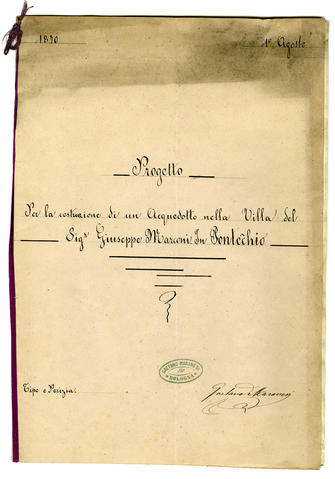 1890
1º Agosto
Progetto
Per la costruzione di un Acquedotto nella Villa del
Sigr Giuseppe Marconi In Pontecchio
Tipo e Perizia.
BOLOGNA
Gaetano